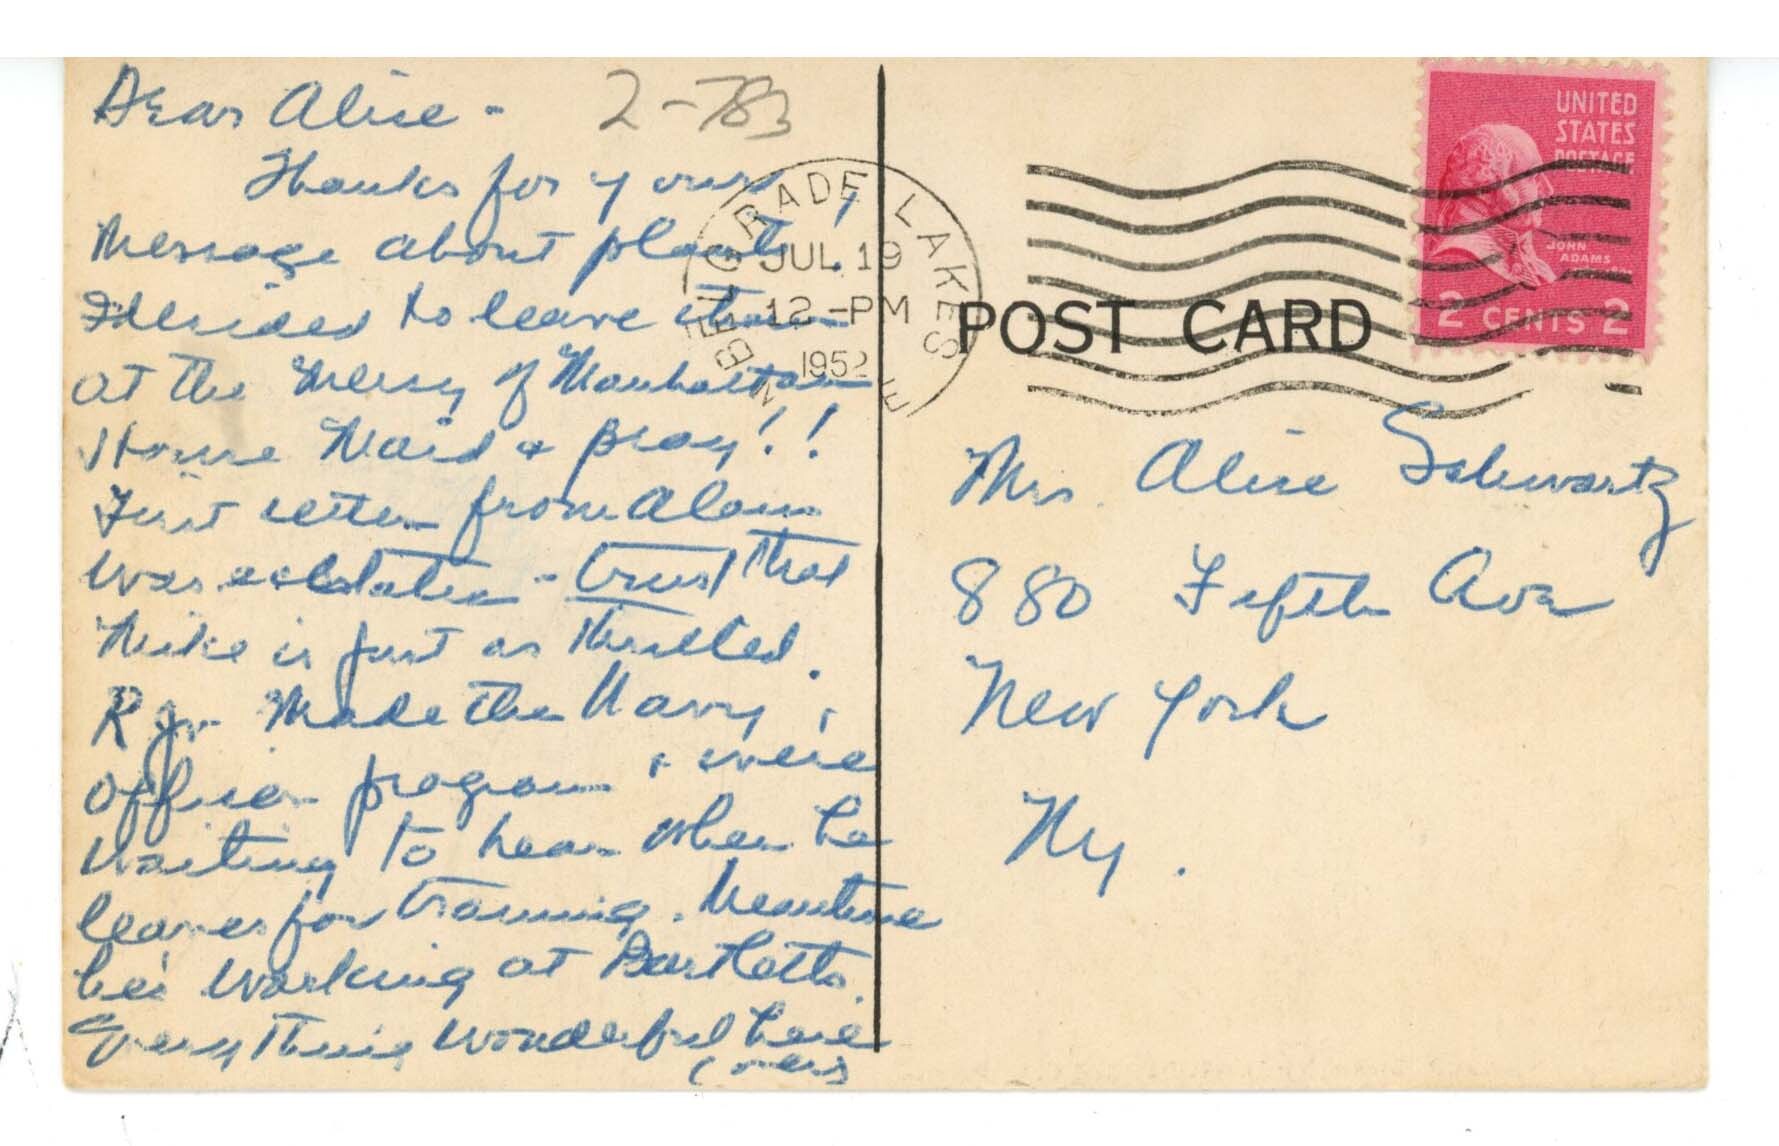 Dear Alice - 2-783
Thanks for your
message about plants,
I decided to leave them
at the mercy of Manhattan
House Maid & pray!!
First letter from Alan
was ecstatic - trust that
Mike is just as thrilled.
R Jr. made the Navy
officer program & we're
waiting to hear when he
leaves for training. Meantime
he's working at Bartletts.
Everything wonderful here
(over)
BELGRADE LAKES
JUL 19
12-PM
1952
POST CARD
UNITED
STATES
POSTAGE
JOHN
ADAMS
2 CENTS 2
Mrs. Alice Schwartz
880 Fifth Ave
New York
NY.